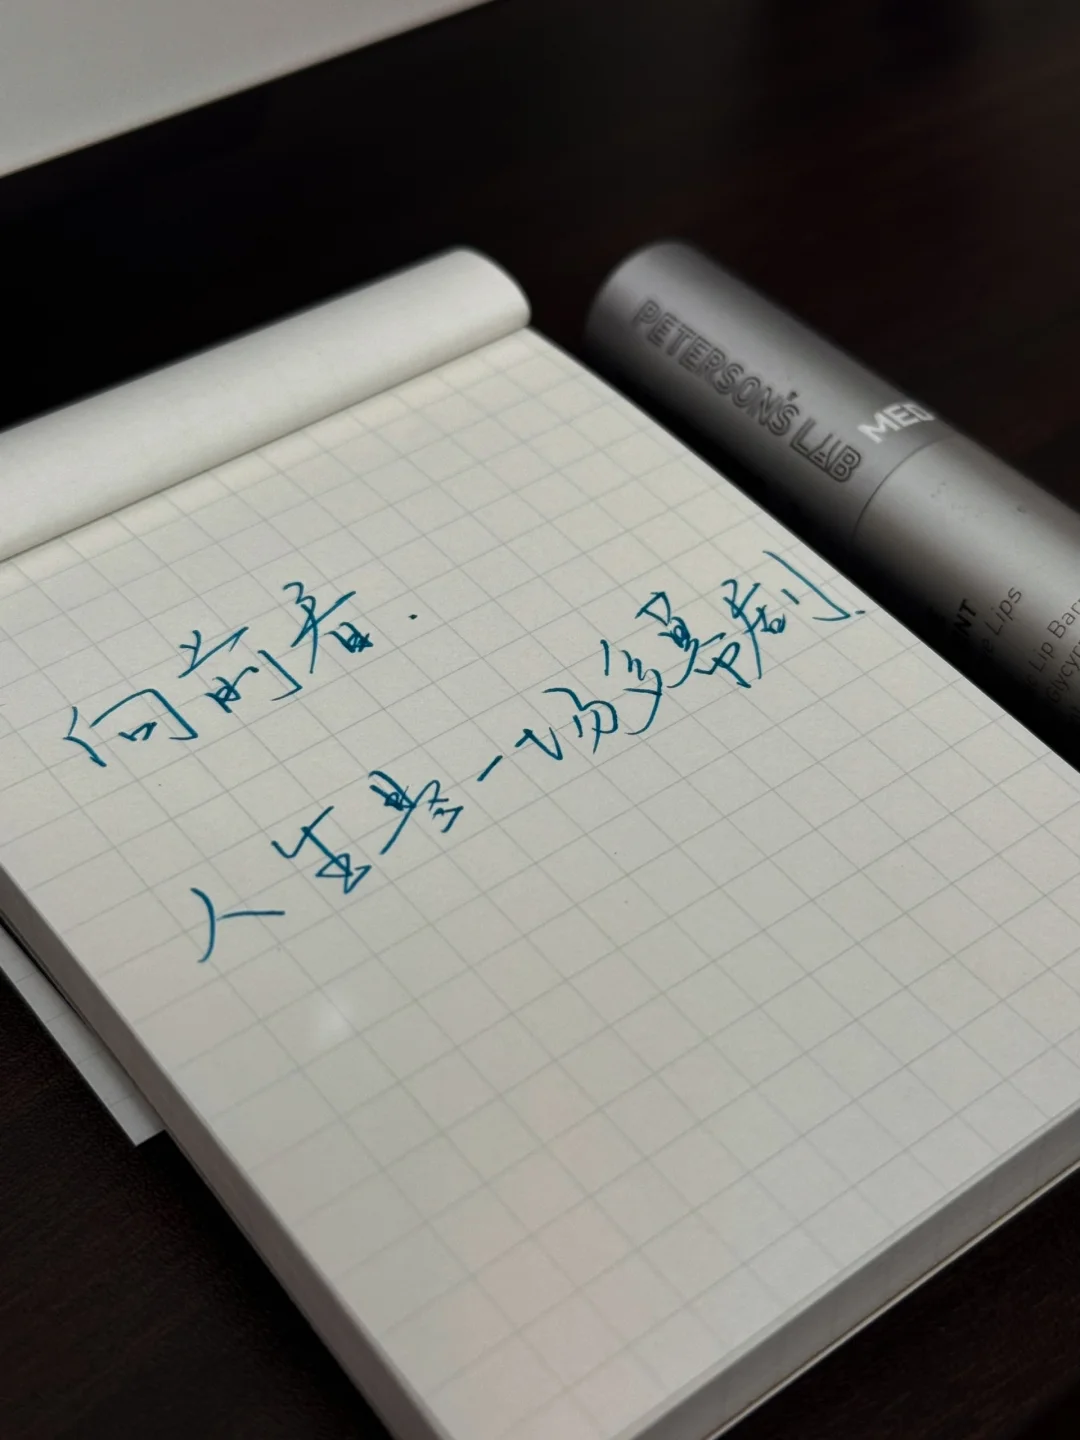 向前看.
人生是一场多幕剧.
PETERSON'S LAB
MED
NT
e Lips
Lip Bar
Glycyr